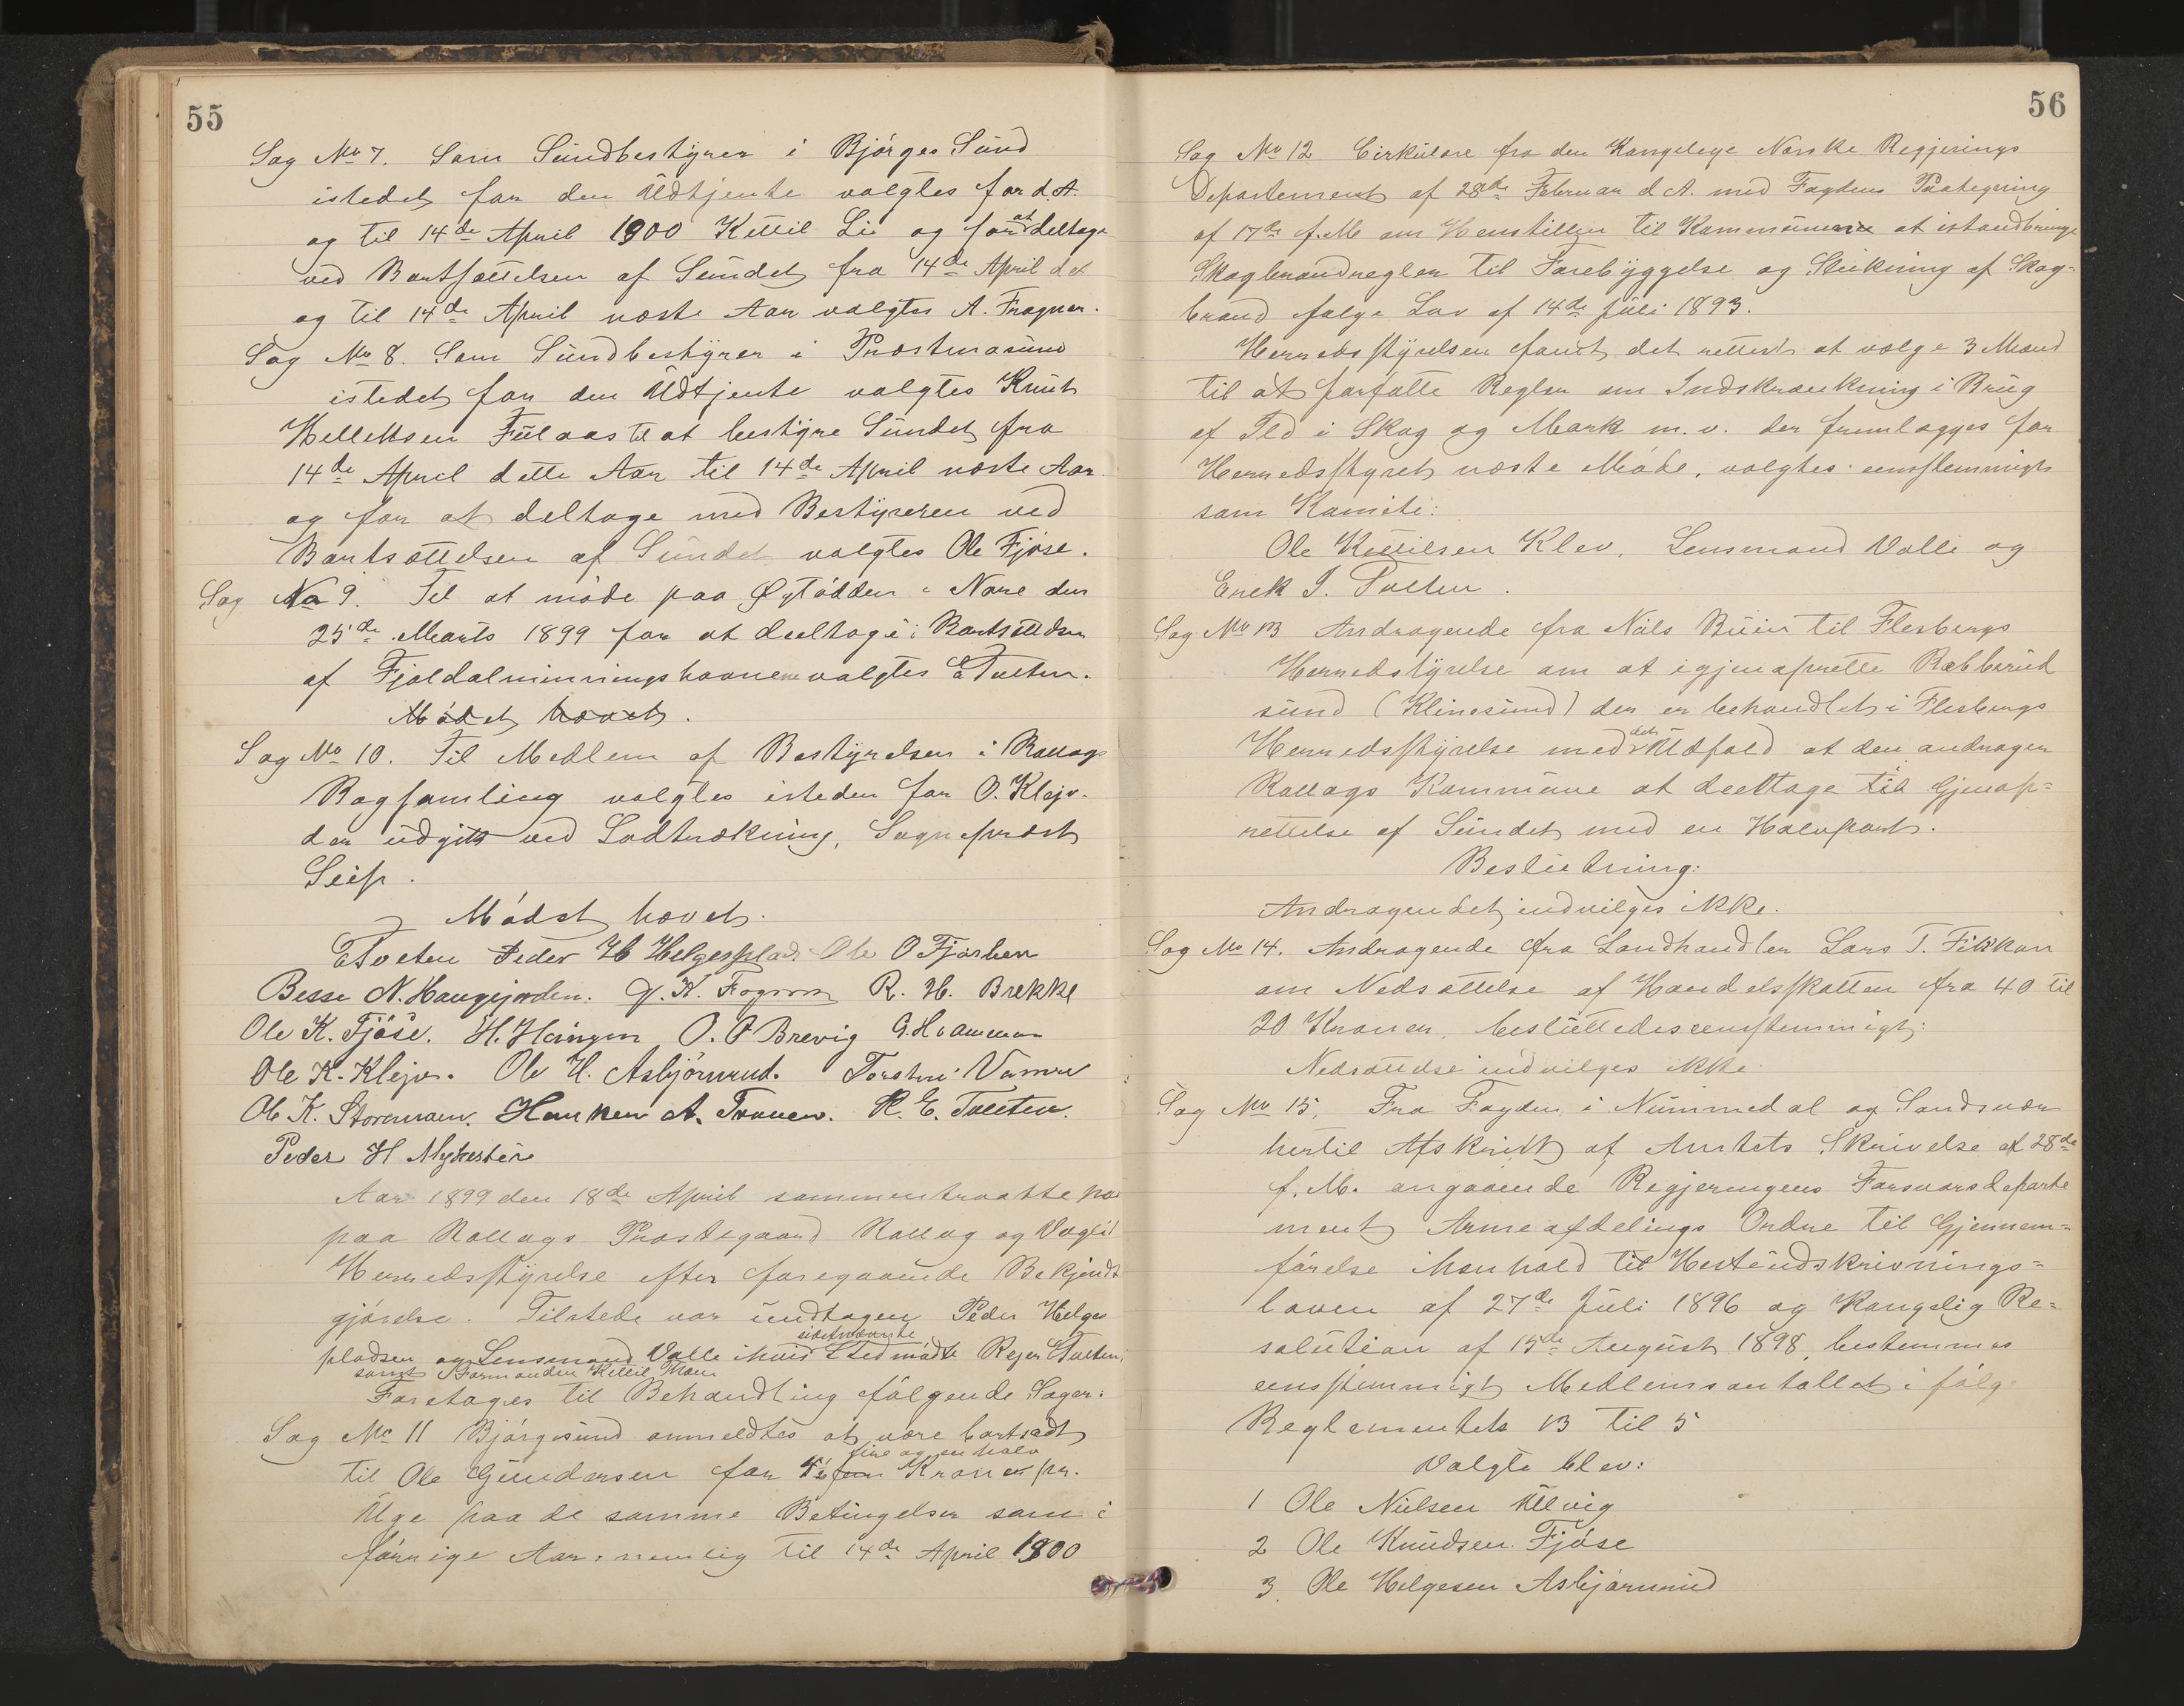 55
Sag No 7. Som Sundbestyrer i Bjørges Sund
istedet for den Udtjente valgtes for d. A.
og til 14de April 1900 Kittil Li og for at deltage
ved Bortsættelsen af Sundet fra 14de April d. A.
og til 14de April næste Aar valgtes A. Fragner.
Sag No 8. Som Sundbestyrer i Præstmosund
istedet for den Udtjente valgtes Knut
Helleksen Fulaas til at bestyre Sundet fra
14de April dette Aar til 14de April næste Aar.
og for at deltage med Bestyreren ved
Bortsættelsen af Sundet valgtes Ole Fjøse.
Sag No 9. Til at møde paa i Nore den
25de Marts 1899 for at deeltage i Bortsættelsen
af Fjeldalminnings havnene valgtes E Tveten.
Mødet hævet.
Sag No 10. Til Medlem af Bestyrelsen i Rollag
Bogsamling valgtes isteden for O. Klejv.
der udgik ved Lodtrækning, Sogneprest
Seip.
Mødet hævet.
E Tveten Peder H Helgesplads Ole O Fjøshen
Besse N. Haugejorden. R. H. Brekke
Ole K. Fjøse. H. O. O Brevig G. Hvammen
Ole K. Klejv. Ole H. Asbjörnrud. Torsten
Ole K. Stormoen. A. Traaen. K. E. Tveten.
Peder H Mykestue
Aar 1899 den 18de April sammentraatte
paa Rollags Præstegaard Rollag og Veglid
Herredsstyrelse efter foregaaende Bekjendt
gjørelse. Tilstede var undtagen Peder Helges
pladsen og Lensmand Valle i hvis sidstnævnte Sted mødte E Tveten
samt Formanden Kittil
Foretages til Behandling følgende Sager:
Sag No 11 Bjørgesund anmeldtes at være bortsadt
til Ole Gundersen for fire og en halv Kroner pr.
Uge paa de samme Betingelser som i
førrige Aar, nemlig til 14de April 1900
56
Sag No 12 Cirkulære fra den Kongelege Norske Regjerings
Departement af 28de Februar d A. med Fogdens Paategning
af 17de f. M om Henstillen til Kommunerne at istandbringe
Skogbrandregler til Forebyggelse og Slukning af Skog-
brand følge Lov af 14de Juli 1893.
Herredsstyrelsen fandt det rettest at vælge 3 Mænd
til at forfatte Regler om Indskrænkning i Brug
af Ild i Skog og Mark m. v. der fremlægges for
Herredsstyrets næste Møde, valgtes eenstemmigt
som Komite:
Ole Kittilsen Klev, Lensmand Valle og
Erick I. Tveten.
Sag No 13 Andragende fra Nils Buin til Flesbergs
Herredstyrelse om at igjenoprette Ræbberud
sund (Klinesund) der er behandlet i Flesbergs
Herredsstyrelse med det Udfald at den andrager
Rollags Kommune at deeltage til Gjenop-
rettelse af Sundet med en Halvpart.
Beslutning:
Andragendet indvilges ikke.
Sag No 14. Andragende fra Landhandler Lars T. Fikkan
om Nedsættelse af Handelsskatten fra 40 til
20 Kroner, besluttedes eenstemmigt:
Nedsættelse indvilges ikke
Sag No 15. Fra Fogden i Nummedal og Sandsvær
hertil Afskrift af Amtets Skrivelse af 28de
f. M. angaaende Regjeringens Forsvarsdeparte
ment Armeafdelings Ordre til Gjennem-
førelse i Henhold til Hesteudskrivnings-
loven af 27de Juli 1896 og Kongelig Re-
solution af 15de August 1898, bestemmes
eenstemmigt Medlemsantallet i følge
Reglementets 13 til 5
Valgte blev:
1 Ole Nielsen Ulevig
2 Ole Knudsen Fjøse
3. Ole Helgesen Asbjørnrud